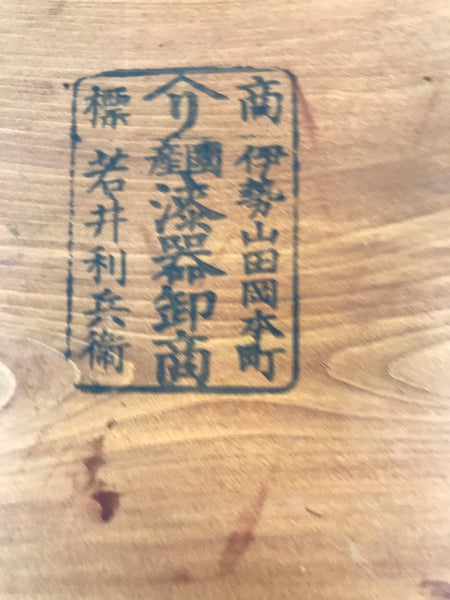 商標
伊勢山田岡本町
リ
國産
漆器卸商
若井利兵衛